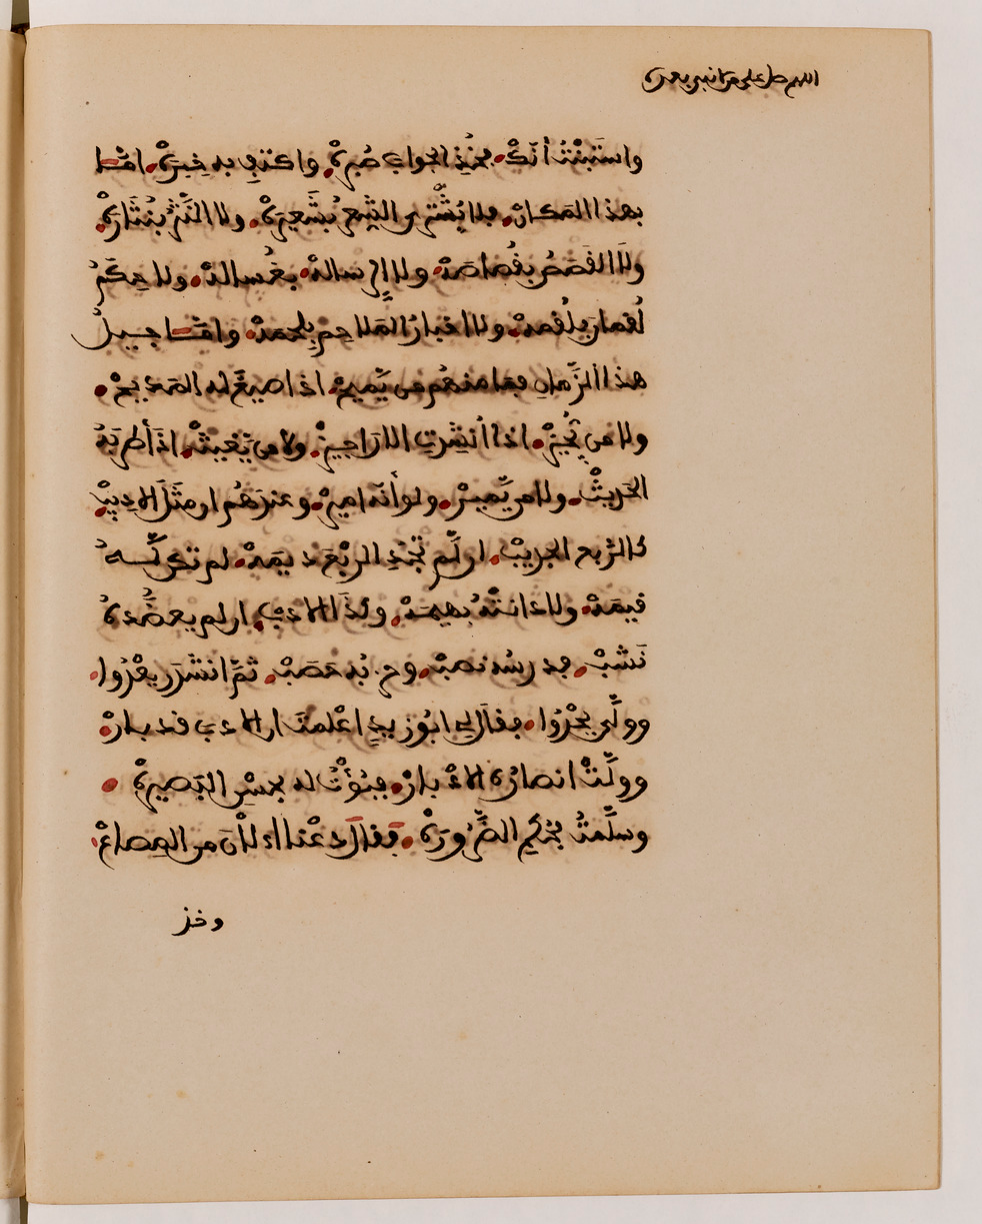 اللهم صل على من لا نبي بعده
واستبنتُ أنّكْ فخُذِ الجواب صُبرةْ واكتفِ به خِبرةْ امّـا
بهذا المكانْ فلا يُشْترى الشِّعرُ بشَعيرةْ ولا النَّثرُ بنُثَارةْ
ولَا القَصَصُ بقُصاصَةْ ولا الرِسالةْ بغُسالةْ ولا حِكَمُ
لُقمان بلُقمةْ ولا اخبارُ المَلاحِم بِلحمةْ وامّـا جيلُ
هذا الزّمانِ فما منهُم من يَّميحْ اذا صيغَ له المديحْ
ولا من يُّجيزْ اذا أُنشِدتِ الاراجيزْ ولا من يَّغيثْ اذا أطربَهُ
الحَديثْ ولا من يَّميرْ ولو أنّه اميرْ وعندَهُم ان مثَلَ الاديبْ
كالرّبع الجديبْ ان لّم تَجُدِ الرّبْعَ ديمةْ لم تكن لّـهُ
قيمةْ ولا دانتْهُ بهيمةْ وكذَا الادب ان لم يعضُدهُ
نَشبْ فدرسُه نصبْ وحزبُه حصبْ ثمّ انسَدَر يعْدُوا
وولّى يحْدُوا فقال لي ابُو زيدٍ اعْلمتَ ان الادب قد بارْ
وولّتْ انصارُهُ الادْبارْ فبُؤْتُ له بحسْنِ البَصيرةْ
وسلّمتُ بحُكمِ الضّرُورةْ فقال دعْنا الآن من المِصاعْ
وخذ